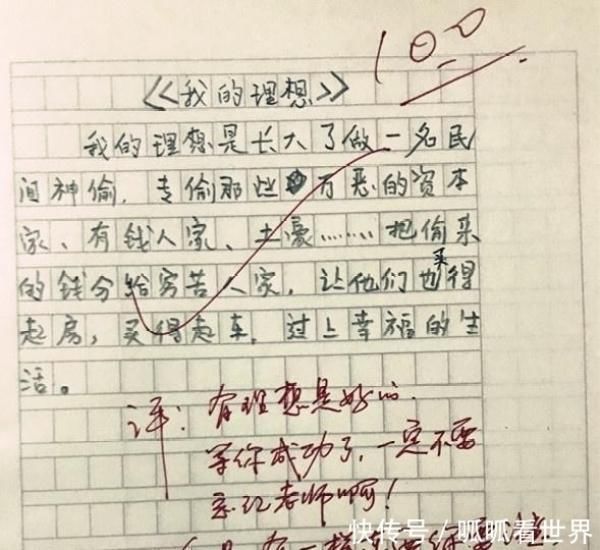 100
《我的理想》
我的理想是长大了做一名民
间神偷,专偷那些万恶的资本
家、有钱人家、土豪……把偷来
的钱分给穷苦人家,让他们也买得
起房,买得起车,过上幸福的生
活。
评:有理想是好的.
等你成功了,一定不要
忘记老师啊!
快传号/呱呱看世界